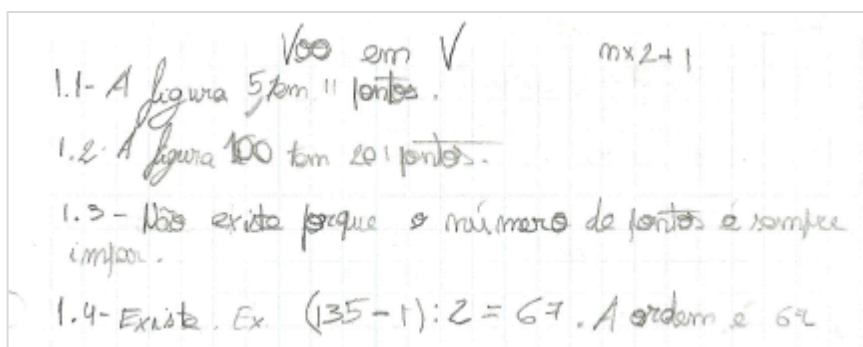 Voo em V n×2+1
1.1- A figura 5, tem 11 pontos.
1.2- A figura 100 tem 201 pontos.
1.3 - Não existe porque o número de pontos é sempre
impar.
1.4- Existe. Ex. (135-1):2 = 67. A ordem é 67